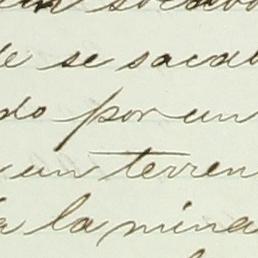 de se sacab
do por un
un terren
la mina